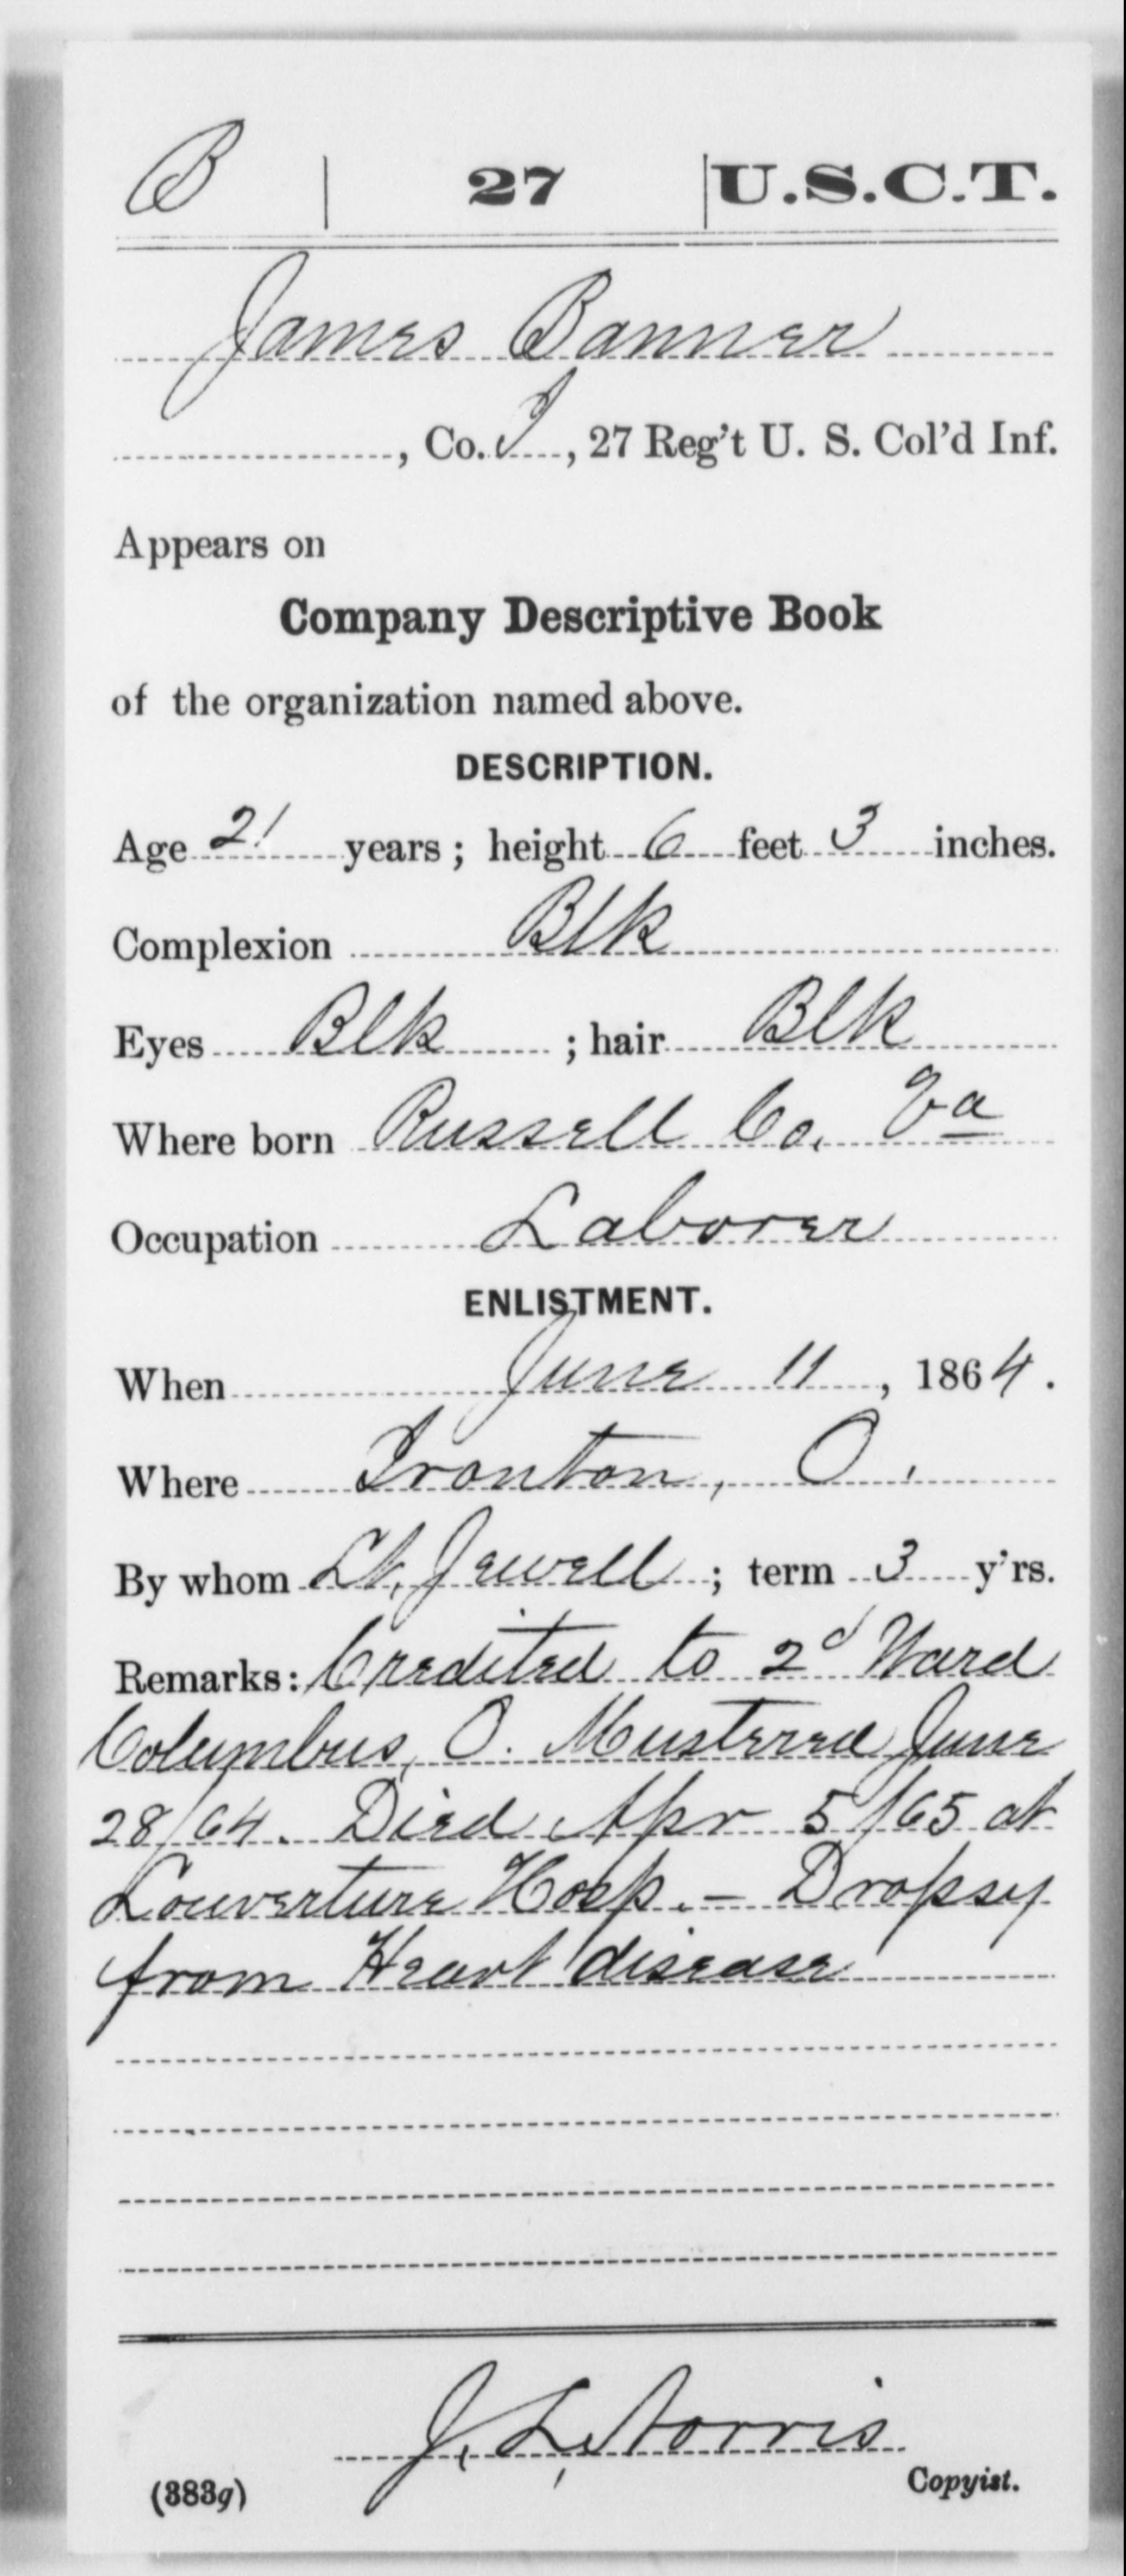 B | 27 | U.S.C.T.
James Banner
, Co. I, 27 Reg't U. S. Col'd Inf.
Appears on
Company Descriptive Book
of the organization named above.
DESCRIPTION.
Age 21 years; height 6 feet 3 inches.
Complexion Blk
Eyes Blk ; hair Blk
Where born Russell Co. Va
Occupation Laborer
ENLISTMENT.
When June 11, 1864.
Where Ironton, O.
By whom Lt. Jewell; term 3 y'rs.
Remarks: Credited to 2d Ward
Columbus, O. Mustered June
28/64. Died Apr 5/65 at
Louverture Hosp. – Dropsy
from Heart disease
J. L. Norris
(383g) Copyist.